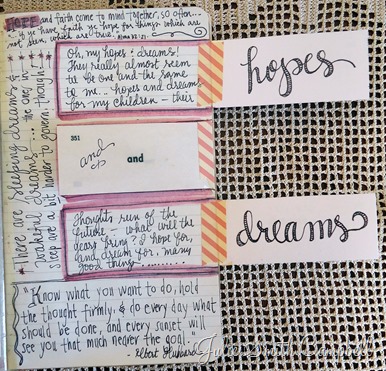 HOPE and faith come to mind together, so often...
if ye have faith ye hope for things which are
not seen, which are true. Alma 32:21
There are sleeping dreams &
wakeful dreams... the ones in
sleep are a bit harder to govern, though
Oh, my hopes & dreams!
They really almost seem
to be one and the same
to me... hopes and dreams
for my children — their
hopes
351
and
and
Thoughts run of the
future — what will the
years bring? I hope for,
and dream for, many
good things..........
dreams
"Know what you want to do, hold
the thought firmly, & do every day what
should be done, and every sunset will
see you that much nearer the goal."
- Elbert Hubbard
Julie Smith Campbell